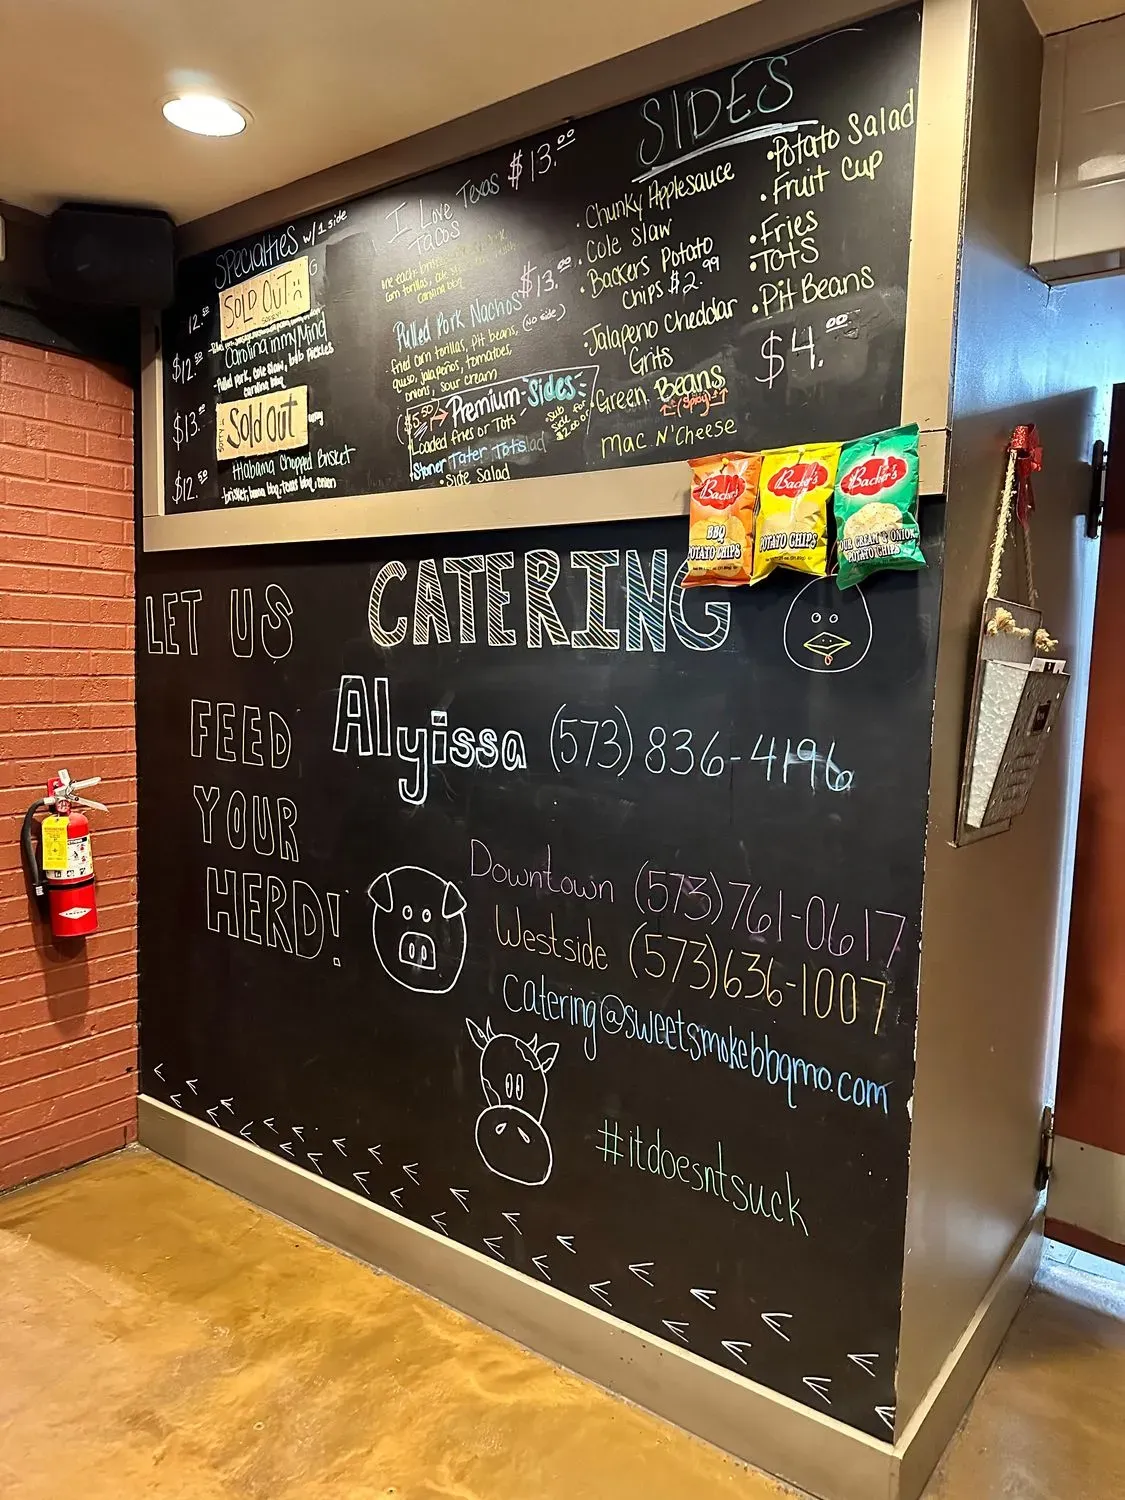 Specialties w/ 1 side
12.50
SOLD OUT
$12.50
Carolina in my Mind
Pulled Pork, cole slaw, bnb pickles
carolina bbq
$13.
Sold Out
$12.50
Alabama Chopped Brisket
brisket, bama bbq, texas bbq, onion
I Love Texas $13.00
Tacos
corn tortillas,
carolina bbq
Pulled Pork Nachos $13.00
fried corn tortillas, pit beans, (no side)
queso, jalapeños, tomatoes,
onions, sour cream
($5.50) → Premium Sides
Loaded fries or Tots
Stoner Tater Tots
• Side Salad
Sub
Side for
$2.00
SIDES
• Chunky Applesauce
• Cole Slaw
• Backers Potato
Chips $2.99
• Jalapeno Cheddar
Grits
• Green Beans
(Spicy)
Mac N' Cheese
• Potato Salad
• Fruit Cup
• Fries
• Tots
• Pit Beans
$4.00
Backer's
BBQ
POTATO CHIPS
Backer's
POTATO CHIPS
Backer's
SOUR CREAM & ONION
POTATO CHIPS
LET US
FEED
YOUR
HERD!
CATERING
Alyissa (573) 836-4196
Downtown (573) 761-0617
Westside (573) 636-1007
catering@sweetsmokebbqmo.com
#itdoesntsuck